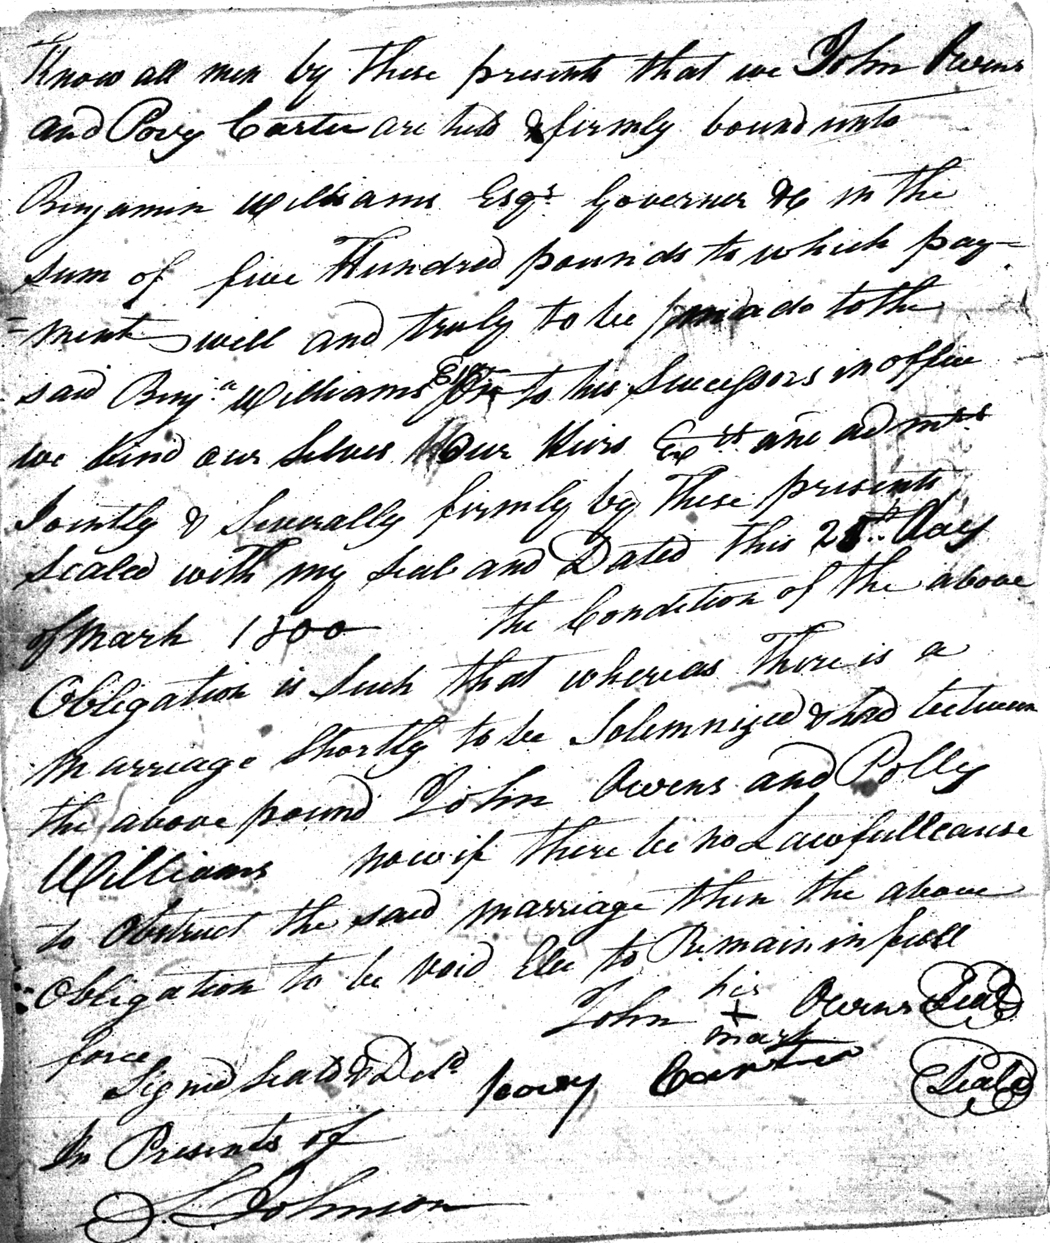 Know all men by these presents that we John Owens
and Povy Carter are held & firmly bound unto
Benjamin Williams Esqr. Governor &c in the
sum of five Hundred pounds to which pay-
=ment well and truly to be made to the
said Benja. Williams Esqr to his Successors in office
we bind our Selves our Heirs Exrs and admrs
Jointly & Severally firmly by these presents
Sealed with my seal and Dated this 28th. day
of March 1800 the Condition of the above
Obligation is Such that whereas there is a
marriage Shortly to be Solemnized & had between
the above pound John Owens and Polly
Williams now if there be no Lawfull cause
to Obstruct the said marriage then the above
Obligation to be void Else to Remain in full
force
John his + mark Owens Seal
Signed Seald & Deld. povy Carter Seal
In Presents of
S. Johnson